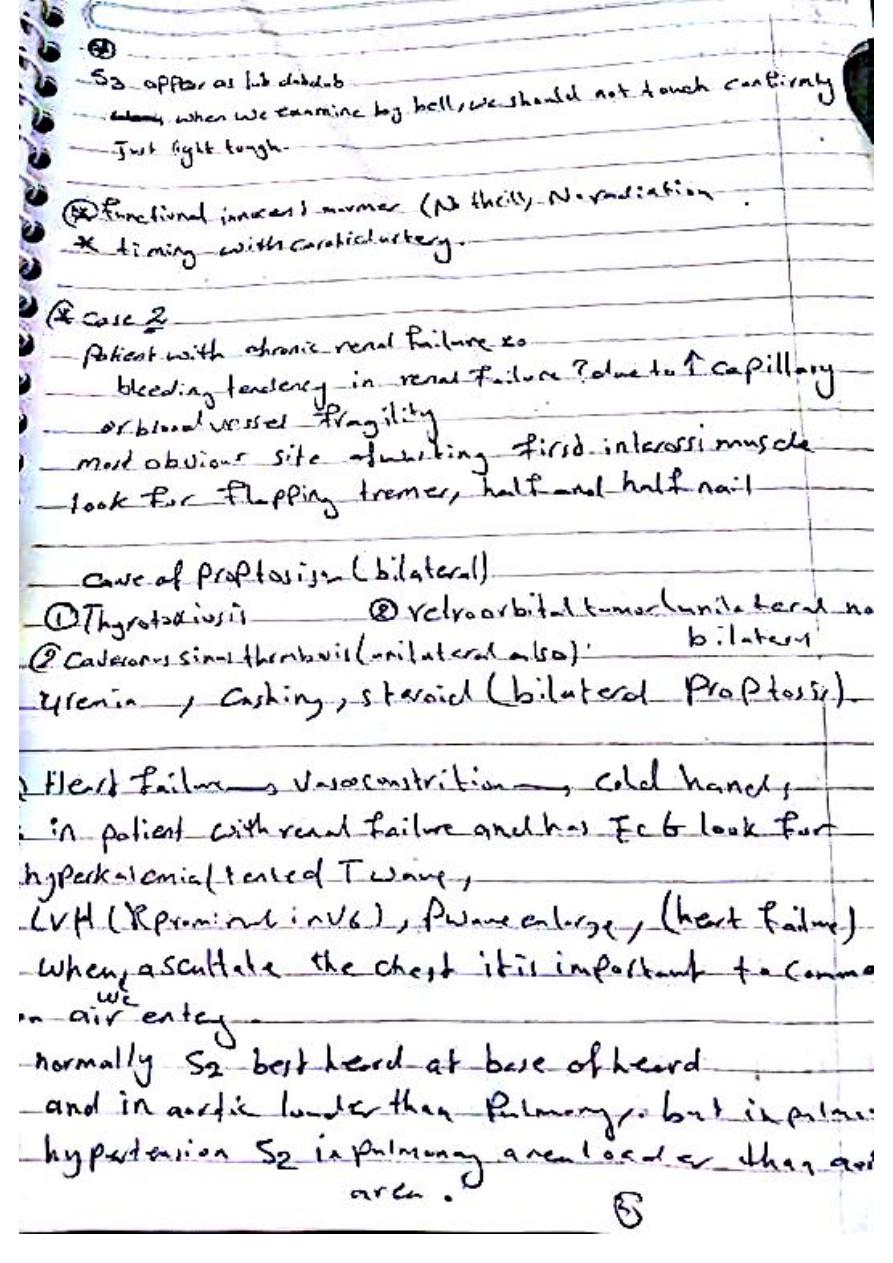 S3 appear as lub dubdub
when we examine by bell, we should not touch confirmly
Just light tough.
* functional innocent murmer (No thrill, No radiation
* timing with carotid artery.
* Case 2
Patient with chronic renal failure
bleeding tendency in renal failure ? due to ↑ capillary
or blood vessel fragility
most obvious site of wasting first interossi muscle
look for flapping tremer, half and half nail
cause of Proptosis (bilateral)
① Thyrotoxicosis ② retroorbital tumor (unilateral no
bilateral
② Cavernous sinus thrombosis (unilateral also)
uremia , Cushing, steroid (bilateral Proptosis)
Heart failure → vasoconstrition → cold hand,
in patient with renal failure and has EcG look for
hyperkalemia (tented T wave,
LVH (R prominent in V6), P wave enlarge, (heart failure)
when we ascultate the chest it is important to comme
on air entey
normally S2 best heard at base of heard
and in aortic louder than Pulmonary. but in pulmo
hypertension S2 in pulmonary area louder than aor
area .
5